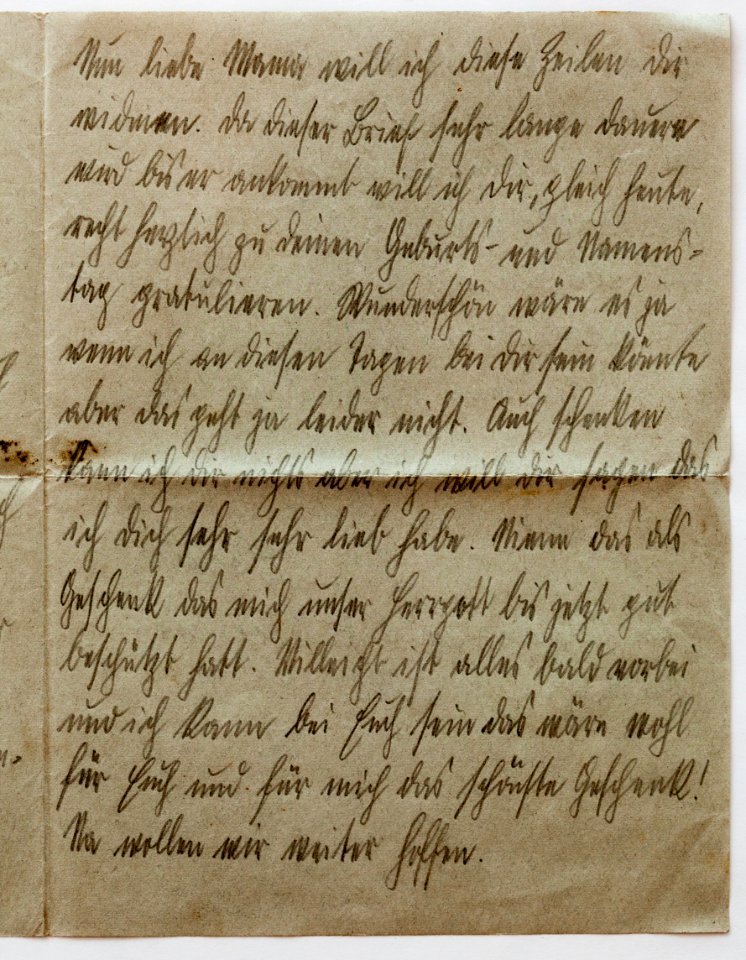 Nun liebe Mama will ich diese Zeilen dir
widmen. Da dieser Brief sehr lange dauern
wird bis er ankommt will ich Dir, gleich heute,
recht herzlich zu deinen Geburts- und Namens=
tag gratulieren. Wunderschön wäre es ja
wenn ich an diesen Tagen bei Dir sein könnte
aber das geht ja leider nicht. Auch schenken
kann ich dir nichts aber ich will Dir sagen das
ich Dich sehr sehr lieb habe. Nimm das als
Geschenk das mich unser Herrgott bis jetzt gut
beschützt hatt. Villeicht ist alles bald vorbei
und ich kann bei Euch sein das wäre wohl
für Euch und für mich das schönste Geschenk!
Na wollen wir weiter hoffen.